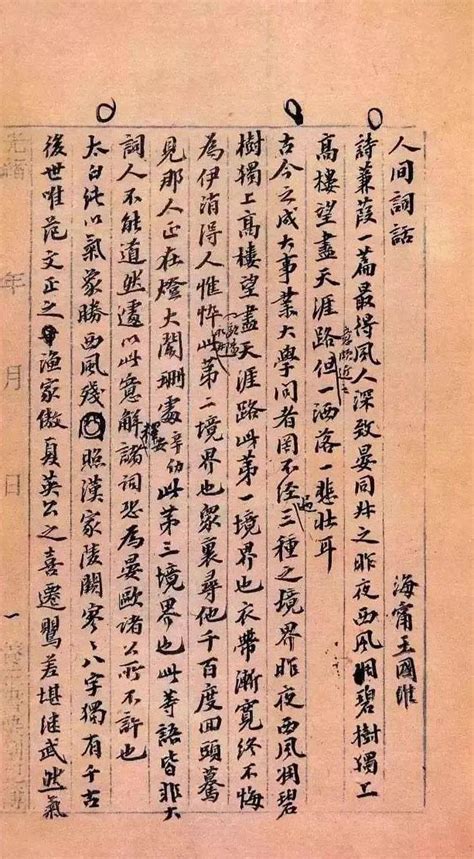 人间詞話
海甯王國維
詩蒹葭一篇最得風人深致晏同叔之昨夜西風凋碧樹獨上
高樓望盡天涯路意頗近之但一洒落一悲壯耳
古今之成大事業大學問者罔不经過三種之境界昨夜西風凋碧
樹獨上高樓望盡天涯路此第一境界也衣帶漸寬終不悔
為伊消得人憔悴此第二境界也衆裏尋他千百度回頭驀
見那人正在燈火闌珊處辛幼安此第三境界也此等語皆非大
詞人不能道然遽以此意解釋諸詞恐為晏歐諸公所不許也
太白純以氣象勝西風殘照漢家陵闕寥〻八字獨有千古
後世唯范文正之漁家傲夏英公之喜遷鶯差堪继武然氣
光緒 年 月 日 一